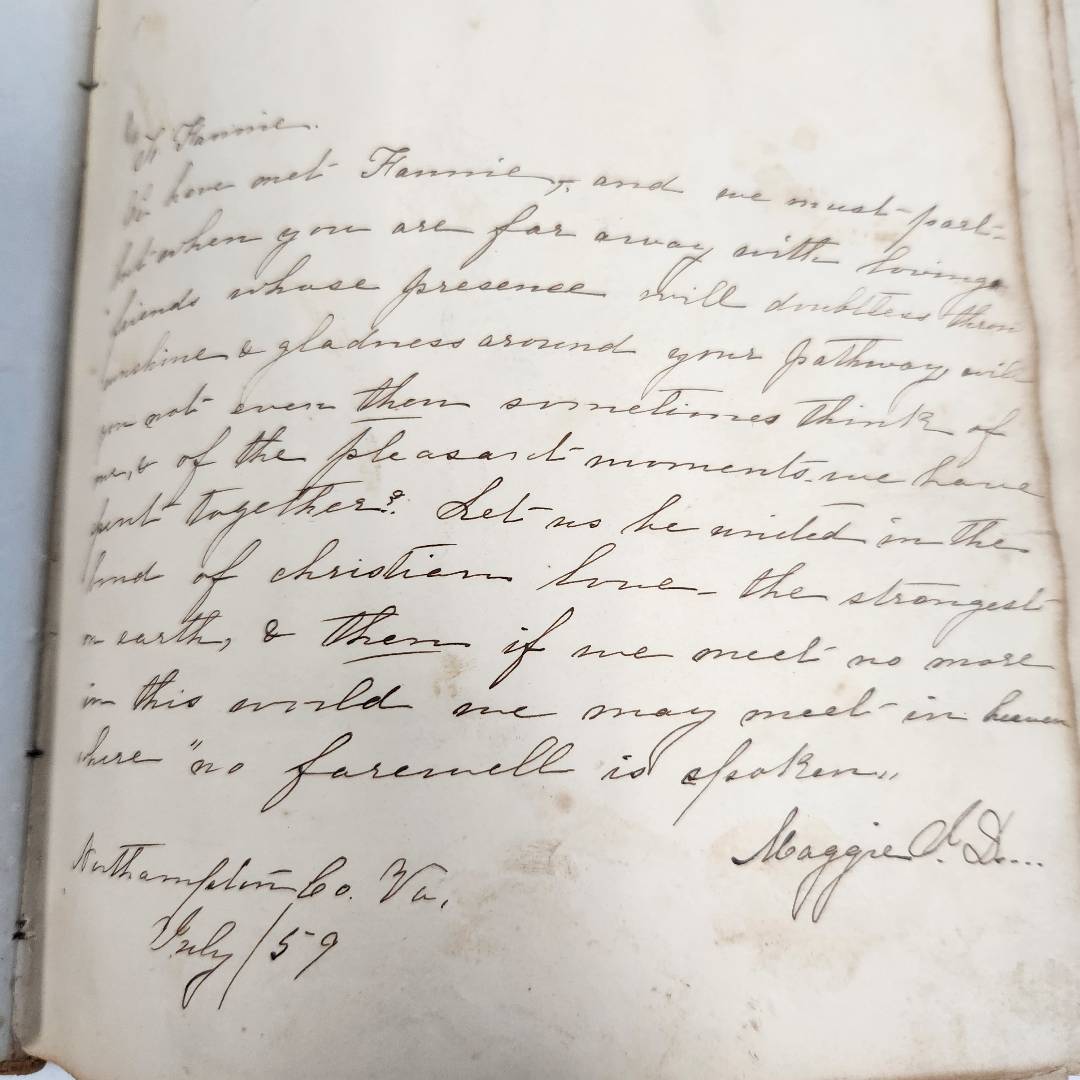 To Fannie.
We have met Fannie, and we must part-
but when you are far away with loving
friends whose presence will doubtless throw
sunshine & gladness around your pathway, will
you not even then sometimes think of
me, & of the pleasant moments we have
spent together? Let us be united in the
bond of christian love - the strongest
on earth, & then if we meet no more
in this world we may meet in heaven
where "no farewell is spoken"
Maggie S. D....
Northampton Co. Va,
July /59